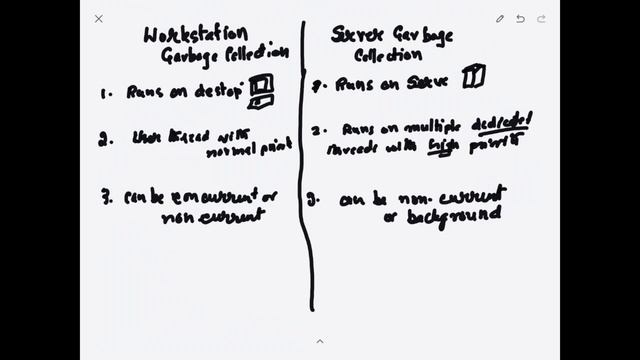 Workstation
Garbage Collection
1. Runs on destop
2. User thread with
normal priorit
3. can be concurrent or
non current
Server Garbage
Collection
1. Runs on Serve
2. Runs on multiple dedicated
threads with high priorit
3. can be non-current
or background